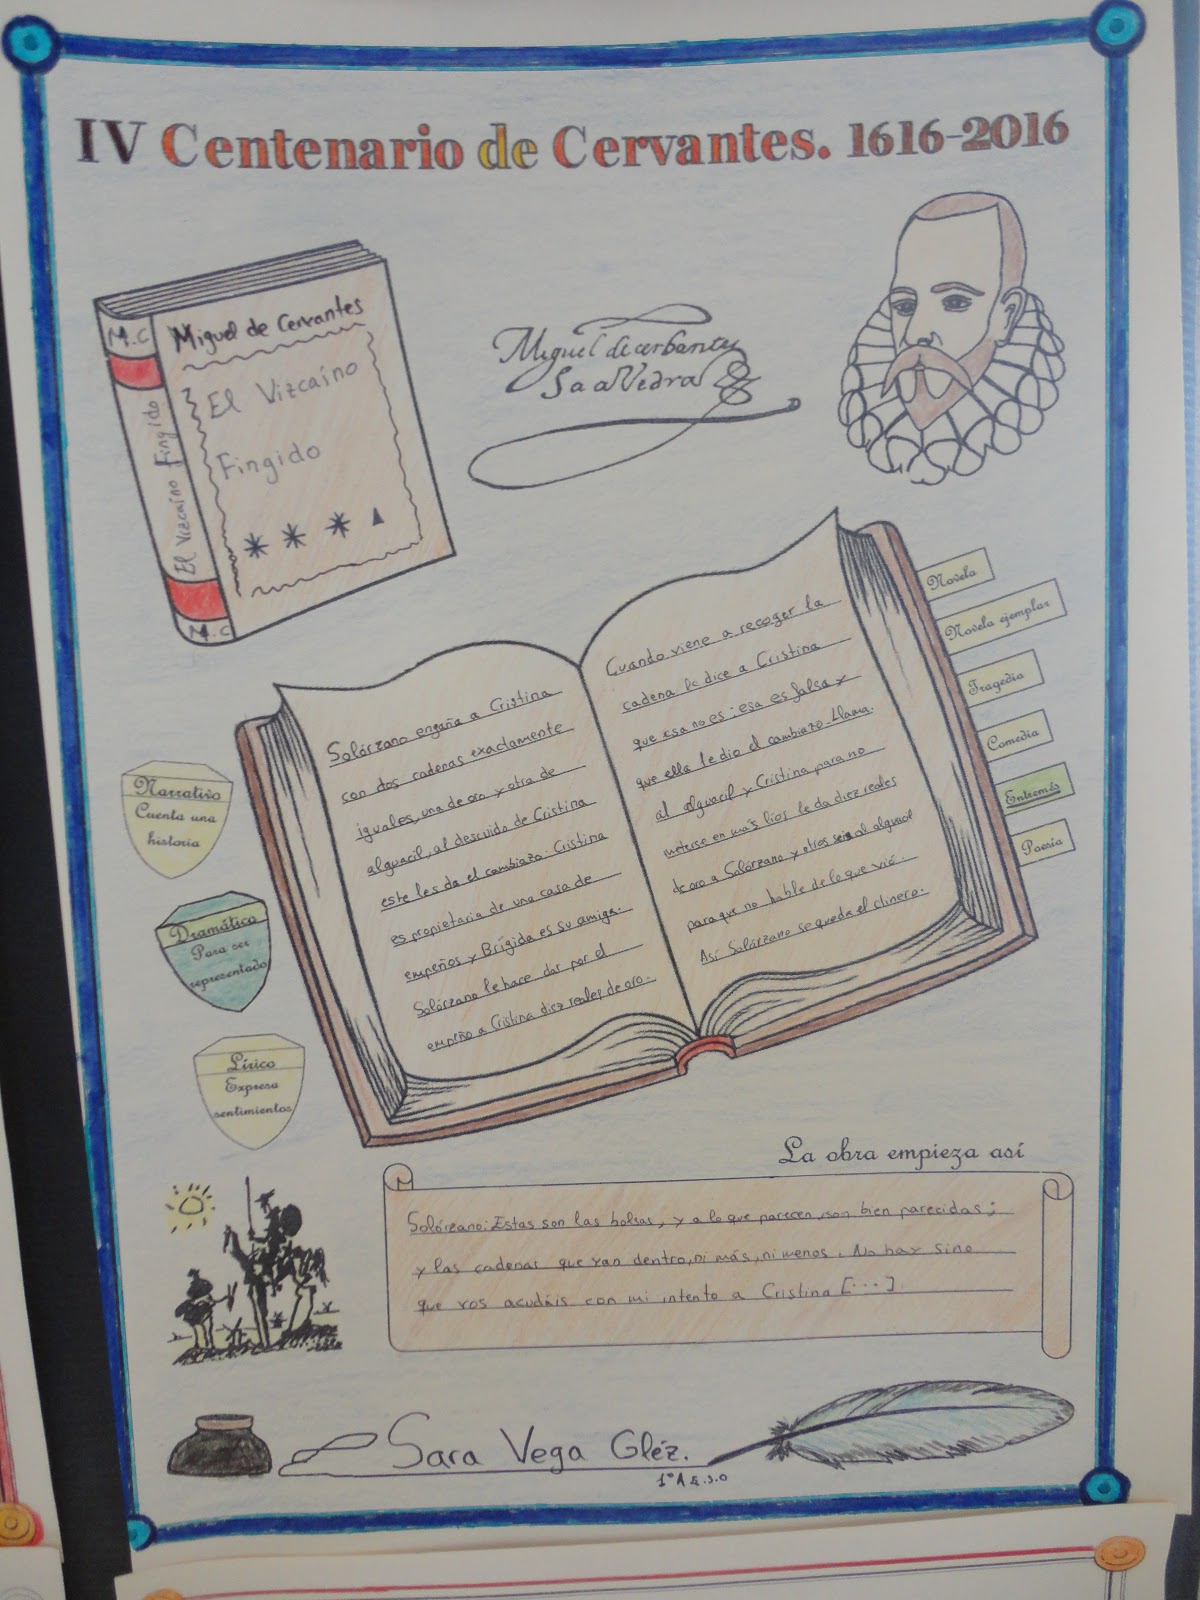 IV Centenario de Cervantes. 1616-2016
M.C
El Vizcaíno Fingido
M.C
Miguel de Cervantes
El Vizcaíno
Fingido
Miguel de cerbantes
Saavedra
Solórzano engaña a Cristina
con dos cadenas exactamente
iguales, una de oro y otra de
alguacil, al descuido de Cristina
este les da el cambiazo. Cristina
es propietaria de una casa de
empeños y Brígida es su amiga.
Solórzano le hace dar por el
empeño a Cristina diez reales de oro.
Cuando viene a recoger la
cadena le dice a Cristina
que esa no es; esa es falsa y
que ella le dio el cambiazo. Llama
al alguacil y Cristina para no
meterse en más líos le da diez reales
de oro a Solórzano y otros seis al alguacil
para que no hable de lo que vió.
Así Solórzano se queda el dinero.
Novela
Novela ejemplar
Tragedia
Comedia
Entremés
Poesía
Narrativo
Cuenta una
historia
Dramático
Para ser
representado
Lírico
Expresa
sentimientos
La obra empieza así
Solórzano: Estas son las bolsas, y a lo que parecen, son bien parecidas;
y las cadenas que van dentro, ni más, ni menos. No hay sino
que vos acudáis con mi intento a Cristina [...]
Sara Vega Gléz.
1º A E.S.O